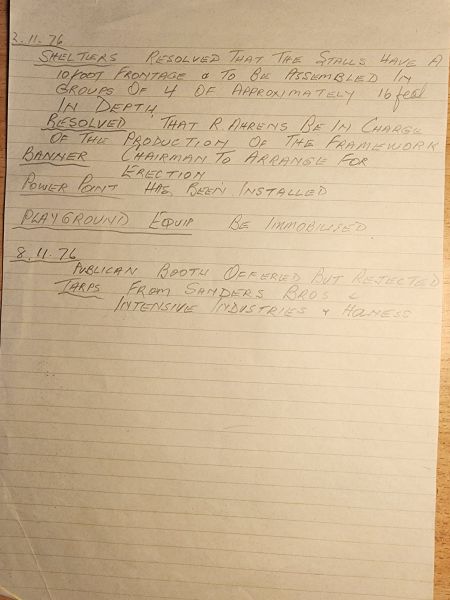 2.11.76
SHELTERS RESOLVED THAT THE STALLS HAVE A
10 FOOT FRONTAGE & TO BE ASSEMBLED IN
GROUPS OF 4 OF APPROXIMATELY 16 feet
IN DEPTH.
RESOLVED THAT R. AHRENS BE IN CHARGE
OF THE PRODUCTION OF THE FRAMEWORK
BANNER CHAIRMAN TO ARRANGE FOR
ERECTION
POWER POINT HAS BEEN INSTALLED
PLAYGROUND EQUIP BE IMMOBILISED
8.11.76
PUBLICAN BOOTH OFFERED BUT REJECTED
TARPS FROM SANDERS BROS &
INTENSIVE INDUSTRIES & HOLNESS